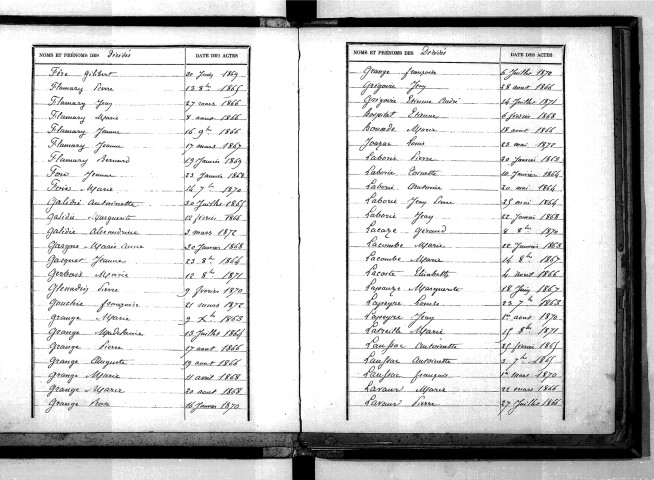 NOMS ET PRÉNOMS DES Décédés DATE DES ACTES
Fère Gilibert 20 Juin 1869
Flamary Pierre 13 8bre 1865
Flamary Jean 27 mars 1866
Flamary Marie 8 aout 1866
Flamary Jeanne 16 9bre 1866
Flamary Jeanne 17 mars 1867
Flamary Bernard 19 Janvier 1869
Foix Jeanne 23 Janvier 1868
Foix Marie 14 7bre 1870
Galidie Antoinette 30 Juillet 1865
Galidie Marguerite 12 février 1866
Galidie Alexandrine 3 mars 1872
Gasque Marie Anne 20 Janvier 1868
Gasquet Jeanne 23 8bre 1864
Gerbaud Marie 12 8bre 1871
Glenadis Pierre 9 février 1870
Gouchie françoise 21 mars 1872
Grange Marie 9 Xbre 1863
Grange Madeleine 13 Juillet 1864
Grange Pierre 17 aout 1866
Grange Auguste 19 aout 1866
Grange Marie 11 avril 1868
Grange Marie 20 aout 1868
Grange Rose 16 Janvier 1870
NOMS ET PRÉNOMS DES Décédés DATE DES ACTES
Grange françoise 6 Juillet 1870
Grégoire Jean 28 aout 1866
Grégoire Etienne 14 Juillet 1871
hospital Etienne 6 février 1868
Marie 18 aout 1866
Louis 25 mai 1870
Laborie Pierre 20 Janvier 1863
Laborie Toinette 10 Janvier 1864
Laborie Antoine 20 mai 1864
Laborie Jean Pierre 25 mai 1864
Laborie Jean 22 Janvier 1868
Lacaze Géraud 8 8bre 1870
Lacombe Marie 22 Janvier 1863
Lacombe Marie 14 8bre 1867
Lacoste Elisabeth 4 aout 1866
Lapauze Marguerite 18 Juin 1867
Lapeyre Louise 23 7bre 1863
Lapeyre Jean 1er aout 1870
Latreille Marie 15 8bre 1871
Laussac Antoinette 25 février 1865
Laussac Antoinette 2 7bre 1865
Laussac françois 1er mars 1870
Lavaur Marie 22 mars 1866
Lavaur Pierre 27 Juillet 1866